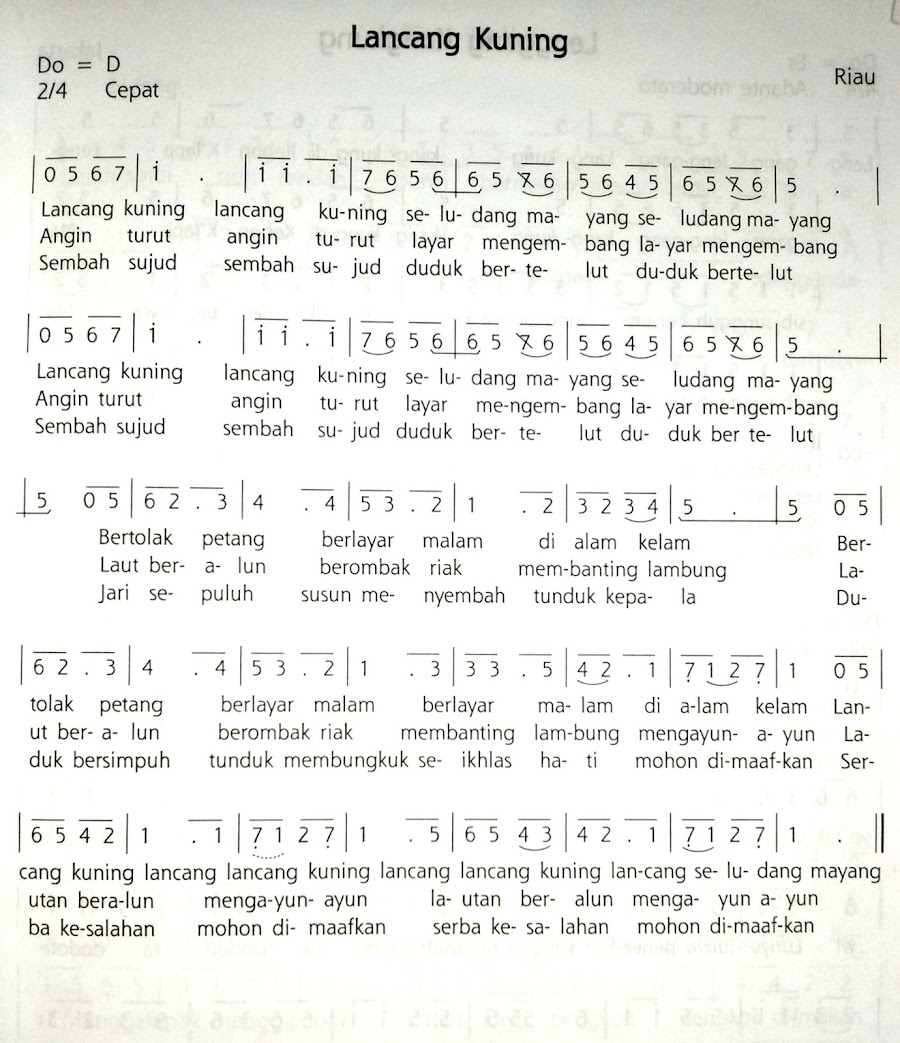 Lancang Kuning
Do = D
2/4 Cepat
Riau
| 0 5 6 7 | i . | i i . i | 7 6 5 6 | 6 5 X 6 | 5 6 4 5 | 6 5 X 6 | 5 . |
Lancang kuning lancang ku-ning se- lu- dang ma- yang se- ludang ma- yang
Angin turut angin tu- rut layar mengem- bang la- yar mengem- bang
Sembah sujud sembah su- jud duduk ber- te- lut du-duk berte- lut
| 0 5 6 7 | i . | i i . i | 7 6 5 6 | 6 5 X 6 | 5 6 4 5 | 6 5 X 6 | 5 . |
Lancang kuning lancang ku-ning se- lu- dang ma- yang se- ludang ma- yang
Angin turut angin tu- rut layar me-ngem- bang la- yar me-ngem-bang
Sembah sujud sembah su- jud duduk ber- te- lut du- duk ber te- lut
| 5 0 5 | 6 2 . 3 | 4 . 4 | 5 3 . 2 | 1 . 2 | 3 2 3 4 | 5 . | 5 0 5 |
Bertolak petang berlayar malam di alam kelam Ber-
Laut ber- a- lun berombak riak mem-banting lambung La-
Jari se- puluh susun me- nyembah tunduk kepa- la Du-
| 6 2 . 3 | 4 . 4 | 5 3 . 2 | 1 . 3 | 3 3 . 5 | 4 2 . 1 | 7̣ 1 2 7̣ | 1 0 5 |
tolak petang berlayar malam berlayar ma- lam di a-lam kelam Lan-
ut ber- a- lun berombak riak membanting lam-bung mengayun- a- yun La-
duk bersimpuh tunduk membungkuk se- ikhlas ha- ti mohon di-maaf-kan Ser-
| 6 5 4 2 | 1 . 1 | 7̣ 1 2 7̣ | 1 . 5 | 6 5 4 3 | 4 2 . 1 | 7̣ 1 2 7̣ | 1 . ||
cang kuning lancang lancang kuning lancang lancang kuning lan-cang se- lu- dang mayang
utan bera-lun menga-yun- ayun la- utan ber- alun menga- yun a- yun
ba ke-salahan mohon di- maafkan serba ke- sa- lahan mohon di-maaf-kan